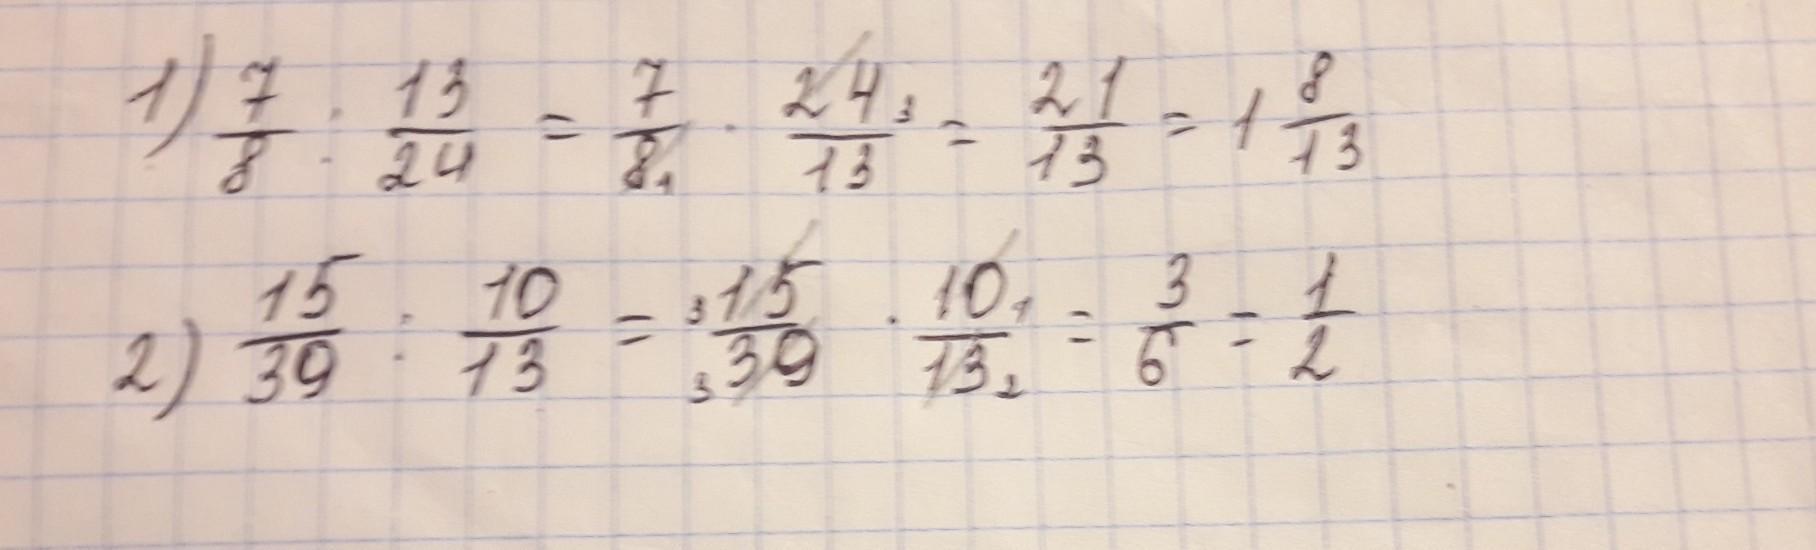 1) 7/8 : 13/24 = 7/8₁ · 24₃/13 = 21/13 = 1 8/13
2) 15/39 : 10/13 = ₃15/₃39 · 10₁/13₂ = 3/6 = 1/2